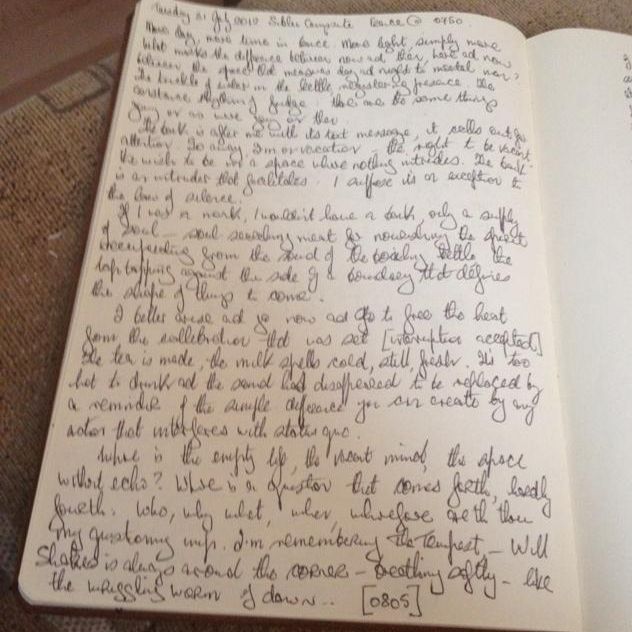 Tuesday 31 July 2012 France @ 0750.
More day, more time in France more light, simply more
what makes the difference between now and then, here and now
between the space that measures day and night to mental
The of water in the kettle, its presence the
constance the same thing
you or
The bank is after me with its text message, it calls out for
attention to say I'm on vacation - the right to be vacant
the wish to be in a space where nothing intrudes. The bank
is an intruder that facilitates. I suppose its an exception to
the law of silence.
If I was a monk, I wouldn't have a bank, only a supply
of soul - soul meant for nourishing the spirit
from the sound of the boiling kettle the
tap tapping against the side of a boundary that defines
the shape of things to come.
I better arise and go now and go to free the heat
from the that was set [interruption accepted]
The tea is made, the milk spells cold, still, fresh. Its too
hot to drink and the sound has disappeared to be replaced by
a reminder of the simple difference you can create by any
action that interferes with status quo.
Where is the empty life, the vacant mind, the space
without echo? Where is a question that comes forth, hardly
fourth. Who, why what, when, wherefore art thou
my questioning imp. I'm remembering the Tempest, - Will
Shakes is always around the corner - breathing softly - like
the wriggling worm of dawn.. [0805]